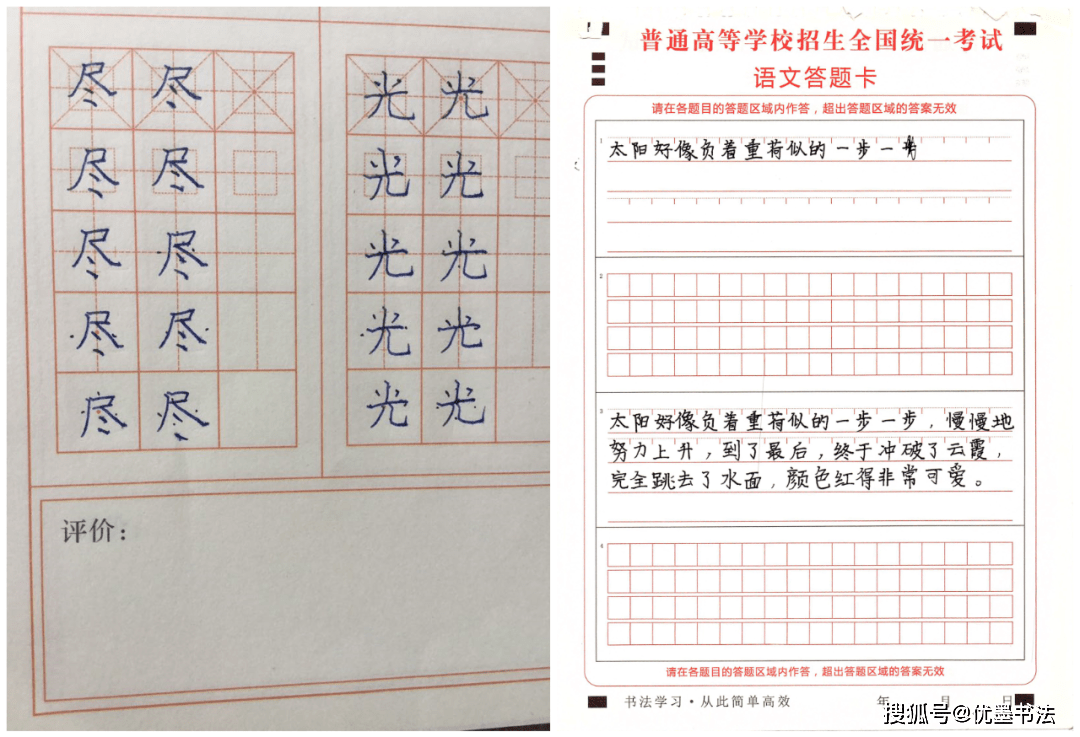 尽 尽
尽 尽
尽 尽
尽 尽
尽 尽
光 光
光 光
光 光
光 光
光 光
评价：
普通高等学校招生全国统一考试
语文答题卡
请在各题目的答题区域内作答，超出答题区域的答案无效
太阳好像负着重荷似的一步一
2
3
太阳好像负着重荷似的一步一步，慢慢地
努力上升，到了最后，终于冲破了云霞，
完全跳去了水面，颜色红得非常可爱。
4
请在各题目的答题区域内作答，超出答题区域的答案无效
书法学习·从此简单高效 年 月 日
搜狐号@优墨书法